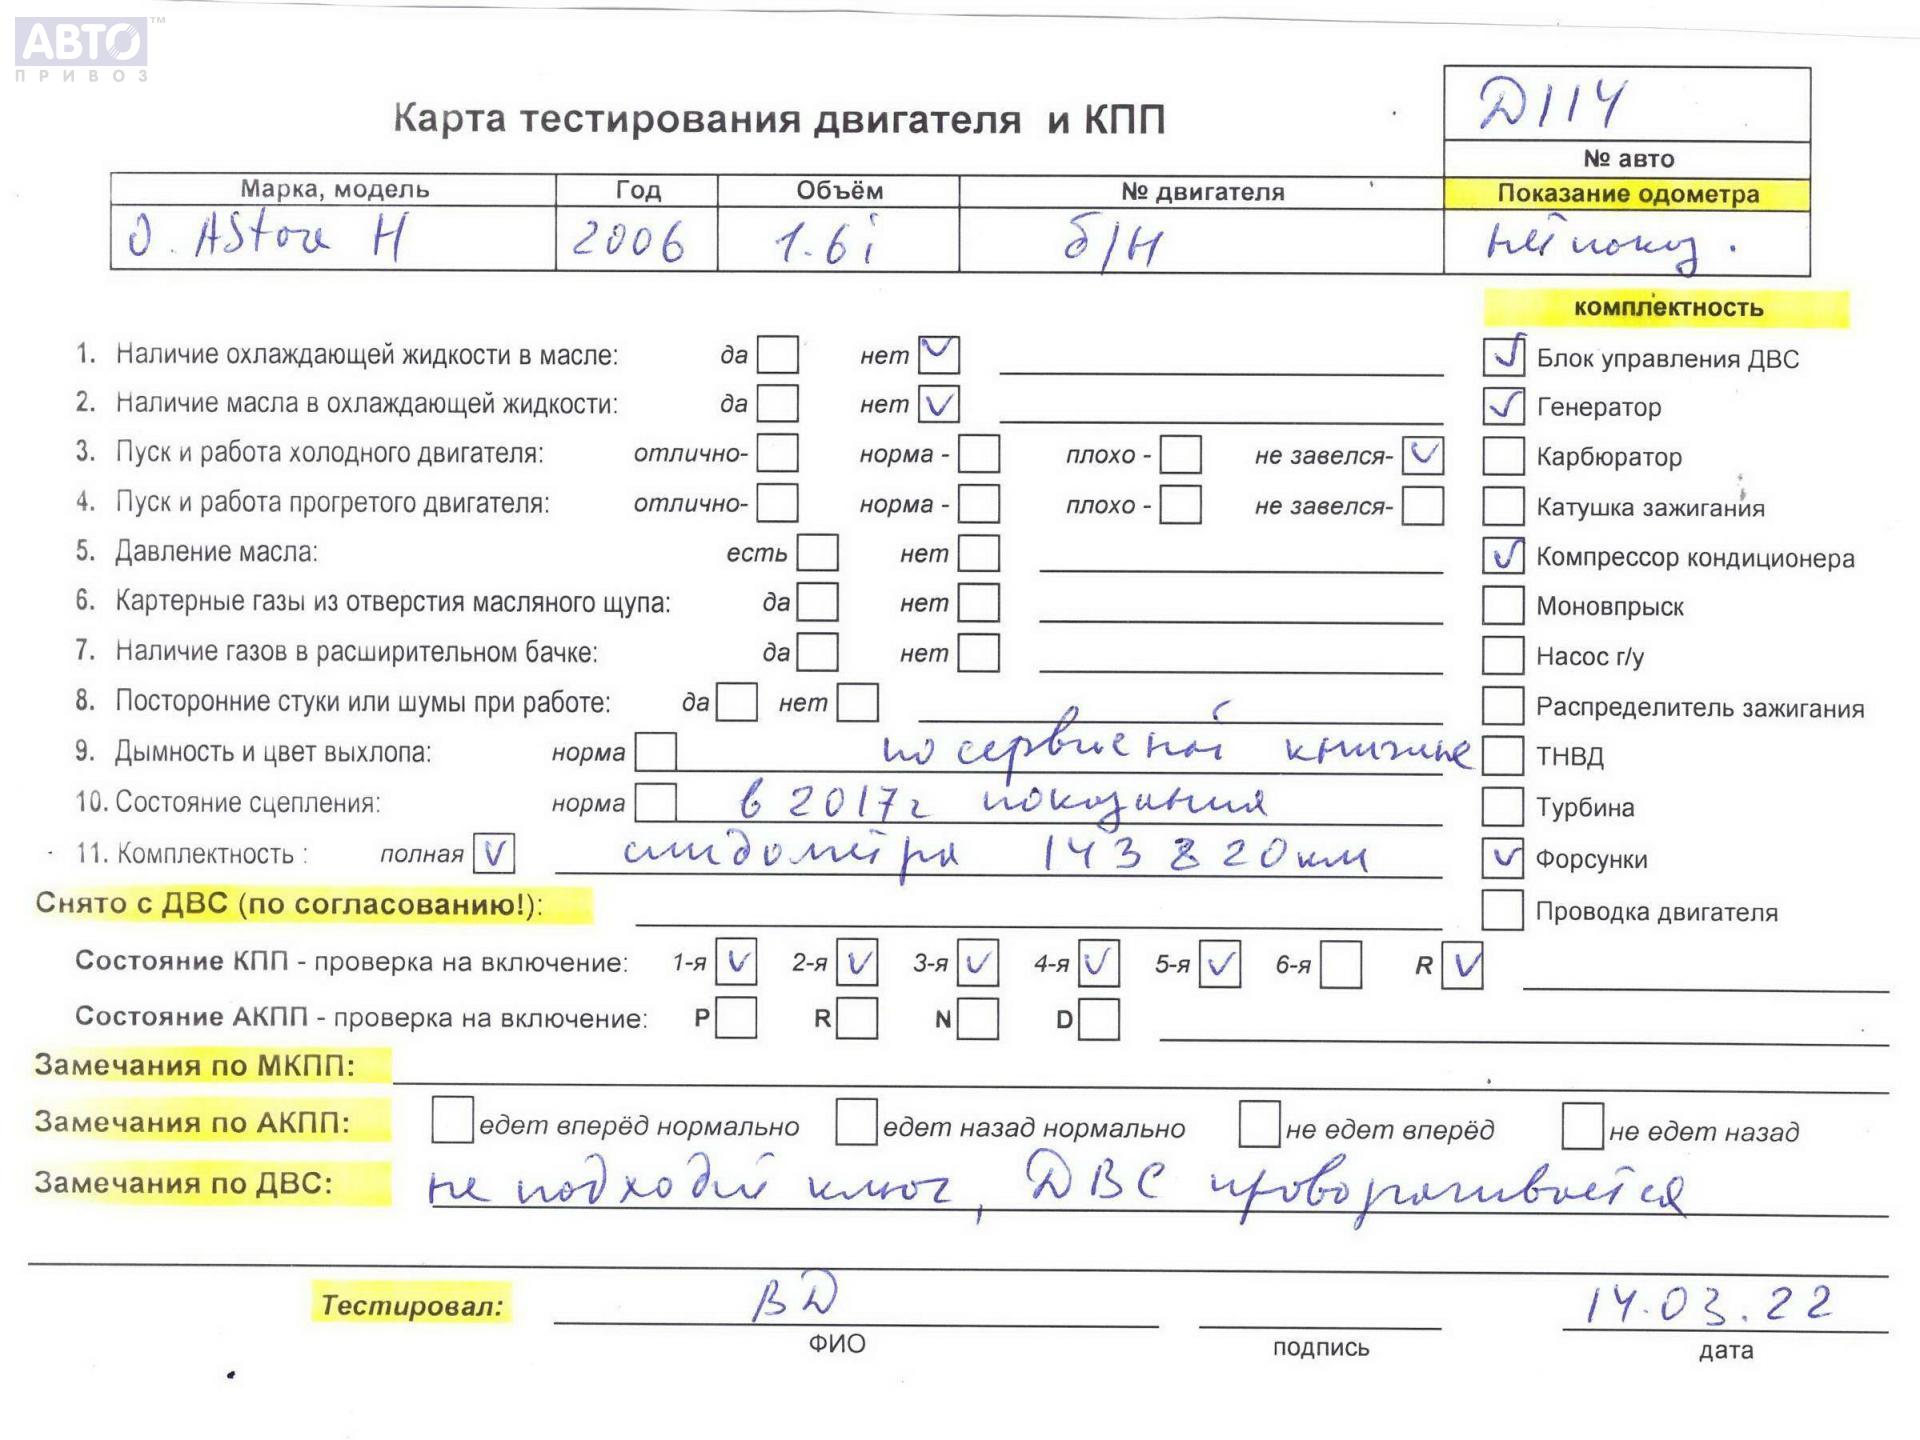 АВТО™
ПРИВОЗ
Карта тестирования двигателя и КПП
Д114
№ авто
Марка, модель Год Объём № двигателя Показание одометра
О. AStra H 2006 1.6i б/н нет показ.
комплектность
1. Наличие охлаждающей жидкости в масле: да нет ✓ ✓ Блок управления ДВС
2. Наличие масла в охлаждающей жидкости: да нет ✓ ✓ Генератор
3. Пуск и работа холодного двигателя: отлично- норма - плохо - не завелся- ✓ Карбюратор
4. Пуск и работа прогретого двигателя: отлично- норма - плохо - не завелся- Катушка зажигания
5. Давление масла: есть нет ✓ Компрессор кондиционера
6. Картерные газы из отверстия масляного щупа: да нет Моновпрыск
7. Наличие газов в расширительном бачке: да нет Насос г/у
8. Посторонние стуки или шумы при работе: да нет Распределитель зажигания
9. Дымность и цвет выхлопа: норма по сервисной книжке ТНВД
10. Состояние сцепления: норма в 2017г показания Турбина
11. Комплектность : полная ✓ спидометра 143 820км ✓ Форсунки
Снято с ДВС (по согласованию!): Проводка двигателя
Состояние КПП - проверка на включение: 1-я ✓ 2-я ✓ 3-я ✓ 4-я ✓ 5-я ✓ 6-я R ✓
Состояние АКПП - проверка на включение: P R N D
Замечания по МКПП:
Замечания по АКПП: едет вперёд нормально едет назад нормально не едет вперёд не едет назад
Замечания по ДВС: не подходит ключ, ДВС проворачивается
Тестировал: ВД 14.03.22
ФИО подпись дата